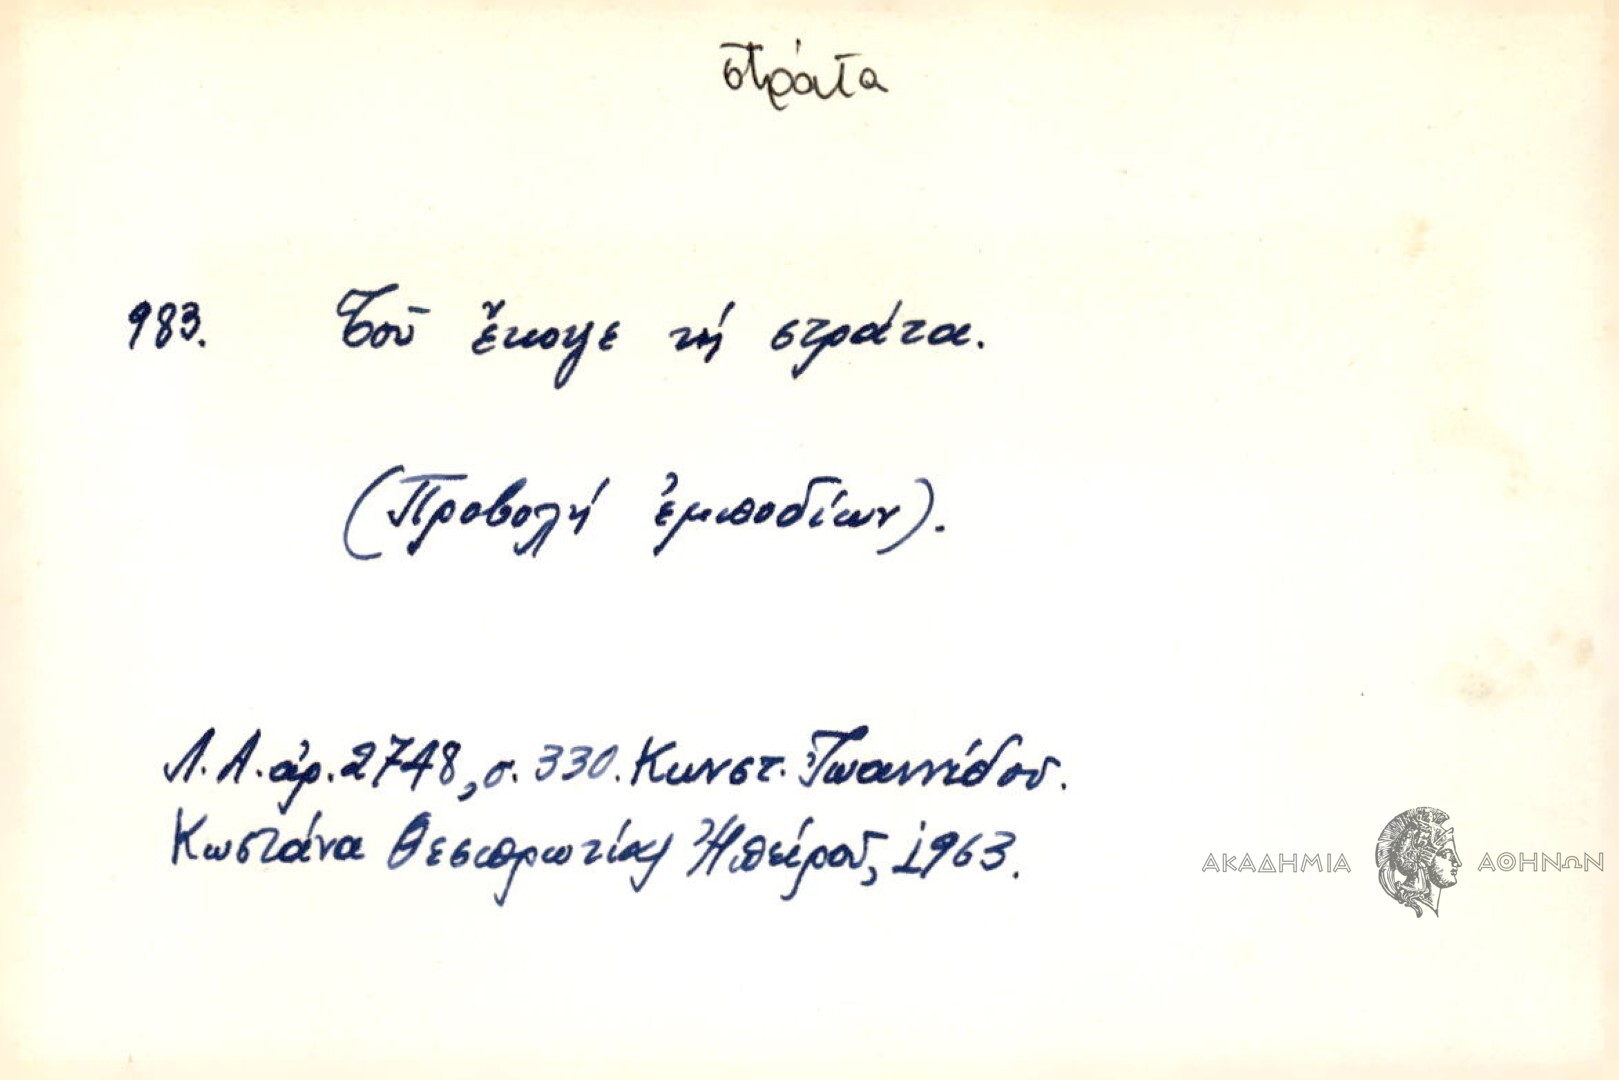 στράτα
983. Τοῦ ἔκοψε τή στράτα.
(Προβολή ἐμποδίων).
Λ.Α. ἀρ. 2748, σ. 330. Κωνστ. Ἰωαννίδου.
Κωστάνα Θεσπρωτίας Ἠπείρου, 1963.
ΑΚΑΔΗΜΙΑ ΑΘΗΝΩΝ